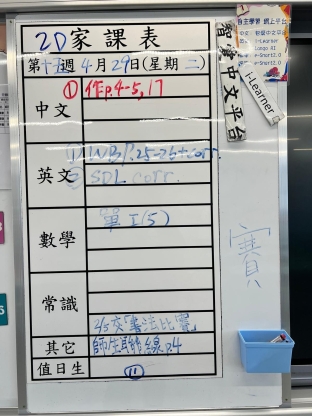 2D家課表
第十五週4月29日(星期二)
中文
①作p.4-5,17
英文
①WB P.25-26+corr.
②SDL corr.
數學
單 I(5)
常識
2/5交「書法比賽」
其它
師生聯絡線 p.4
值日生
⑪
智愛中文平台
i-Learner
自主學習 網上平台
賽